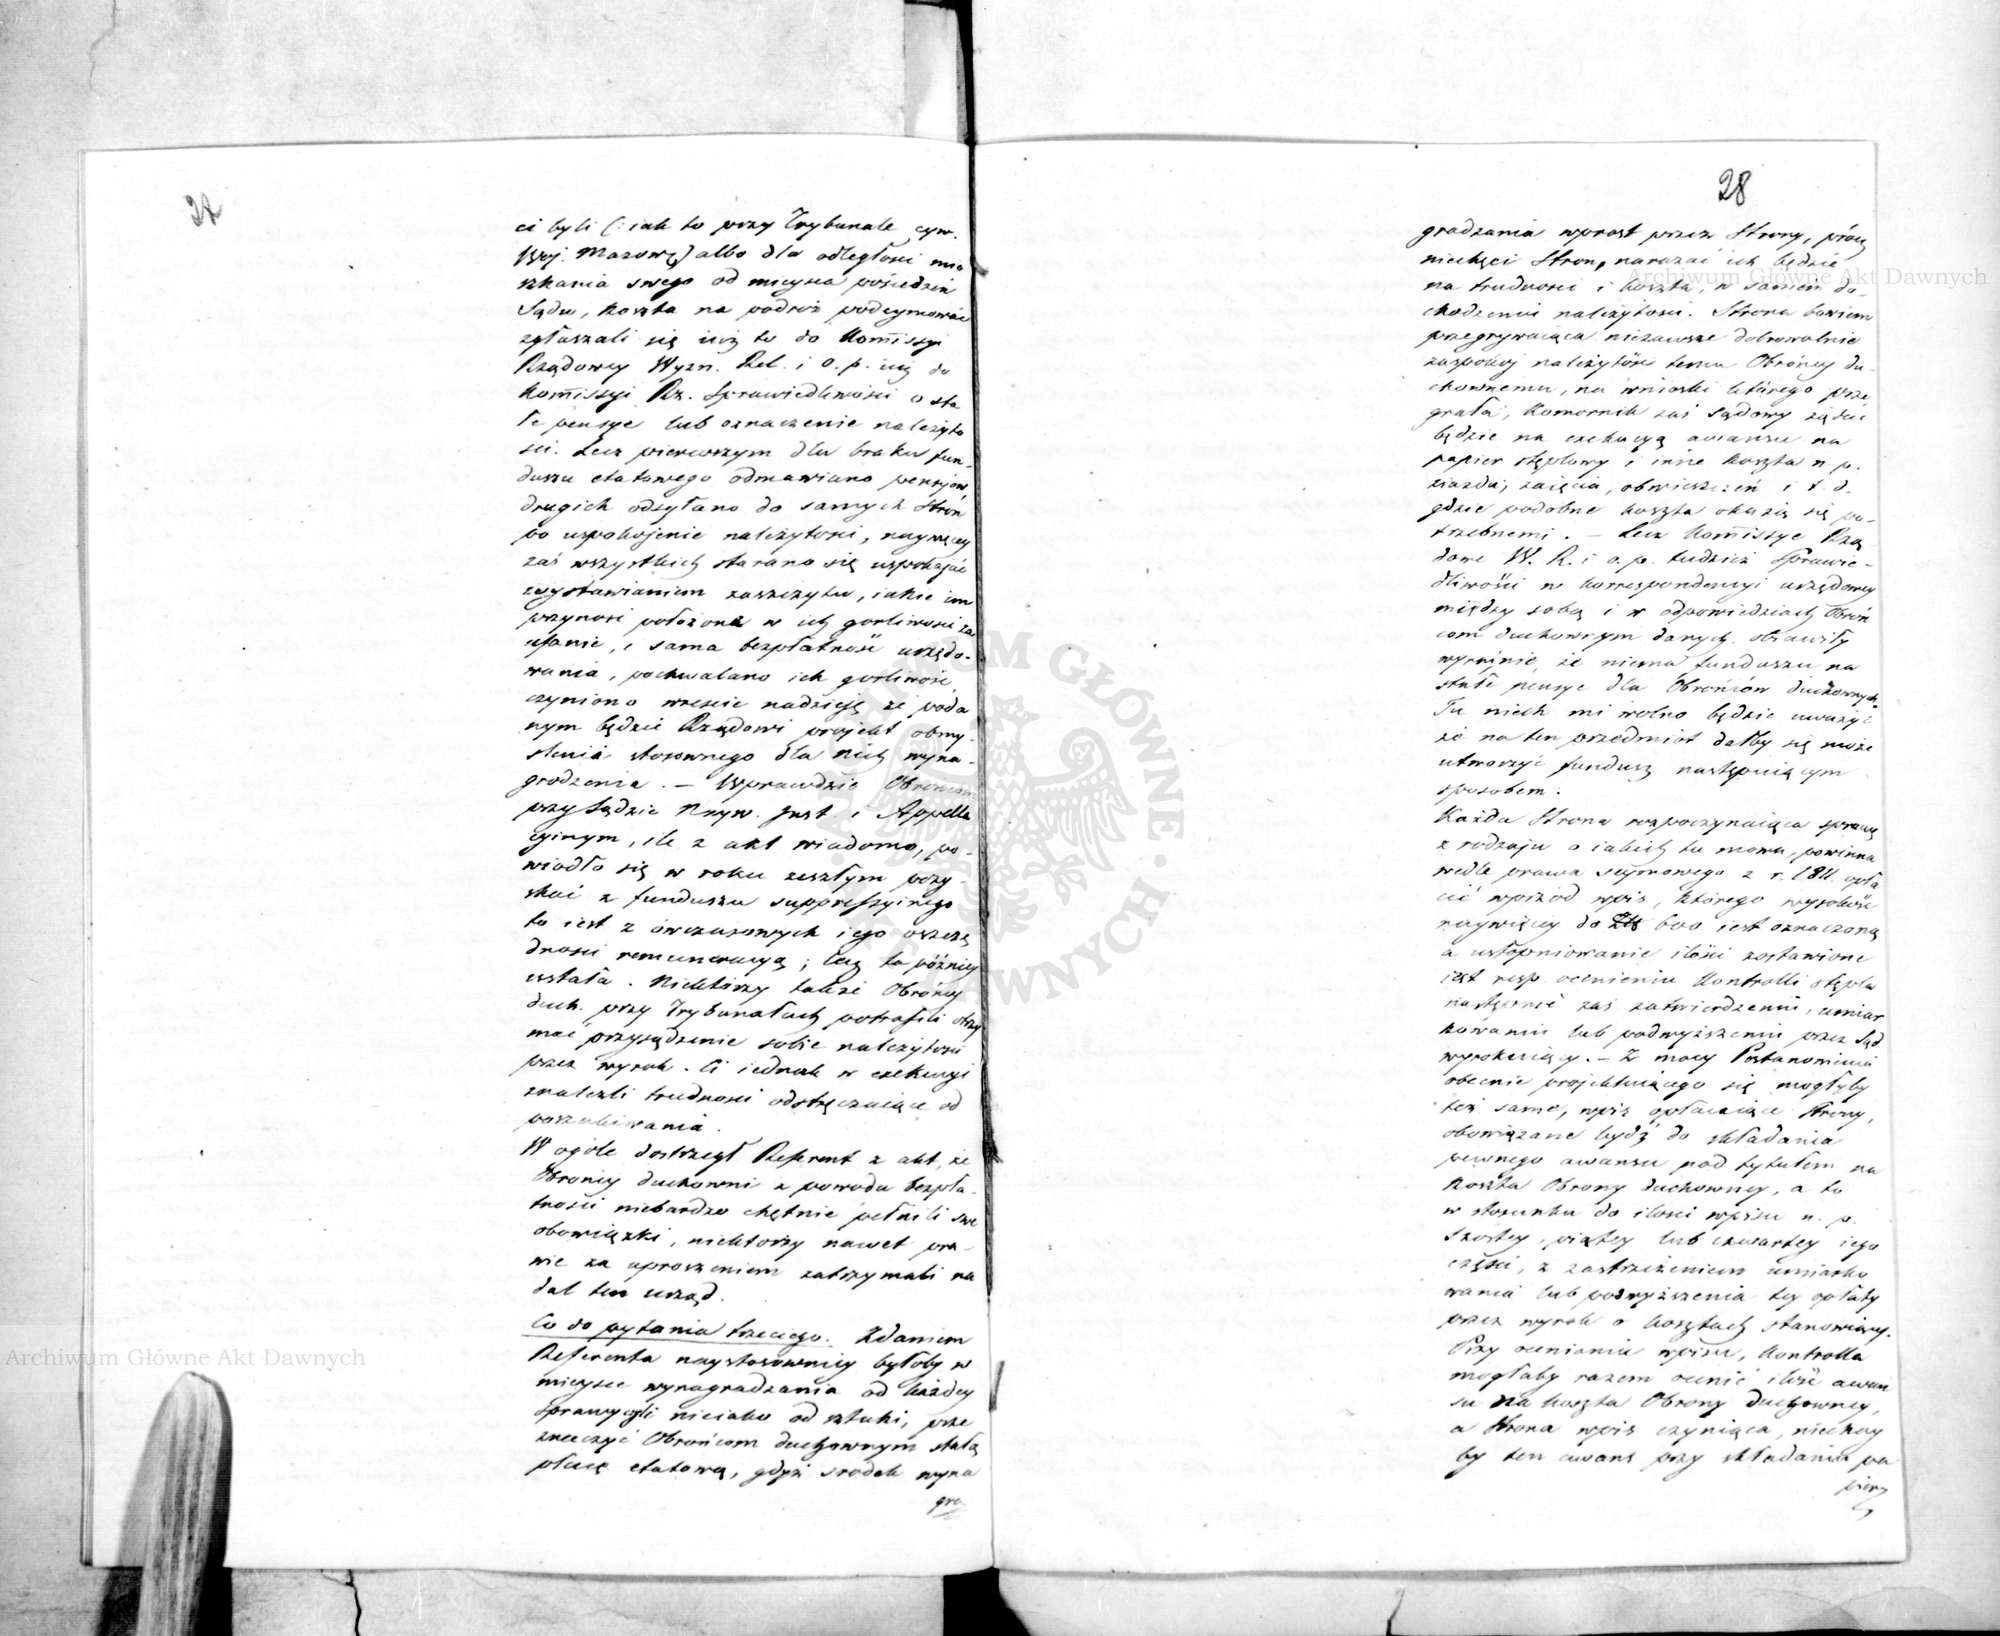 27
ci byli (: iak to przy Trybunale cyw.
Woj. Mazow:) albo dla odległości mie
szkania swego od mieysca posiedzeń
Sądu, koszta na podróż podeymować
zgłaszali się iuż to do Kommissyi
Rządowey Wyzn. Rel. i O. p. iuż do
Kommissyi Rz. Sprawiedliwości o sta
łe pensye lub oznaczenie należyto
ści. Lecz pierwszym dla braku fun-
duszu etatowego odmawiano pensyów
drugich odsyłano do samych Stron
po uspokojenie należytości, naywięcey
zaś wszystkich starano się uspokajać
wystawianiem zaszczytu, iakie im
przynosi położone w ich gorliwości za
ufanie, i sama bezpłatność urzędo-
wania, pochwalano ich gorliwość,
czyniono wreście nadzieję że poda
nym będzie Rządowi projekt obmy-
slenia stosownego dla nich wyna-
grodzenia. — Wprawdzie Obrońcom
przy Sądzie Nayw. Inst. i Appella
cyinym, ile z akt wiadomo, po-
wiodło się w roku zeszłym pozy-
skać z funduszu suppressyinego
to iest z ówczasowych iego oszczę
dności remuneracyą; lecz ta późniey
ustała. Niektórzy także Obrońcy
duch. przy Trybunałach potrafili otrzy
mać przysądzenie sobie należytości
przez wyrok. Ci iednak w exekucyi
znaleźli trudności odstręczaiące od
poszukiwania.
W ogóle dostrzegł Referent z akt, że
Obrońcy duchowni z powodu bezpła-
tności niebardzo chętnie pełnili swe
obowiązki, niektórzy nawet pra-
wie za uproszeniem zatrzymali na
dal ten urząd.
Co do pytania trzeciego. Zdaniem
Referenta naystosowniey byłoby w
mieysce wynagradzania od każdey
sprawy czyli nieiako od sztuki, prze
znaczyć Obrońcom duchownym stałą
płacę etatową, gdyż srodek wyna
gra
28
gradzania wprost przez Strony, przy
niechęci Stron, narażać ich będzie
na trudności i koszta, w samem do-
chodzeniu należytości. Strona bowiem
przegrywaiąca niezawsze dobrowolnie
zaspokoj należytość temu Obrońcy du-
chownemu, na wnioski którego prze
grała, Komornik zaś sądowy żądać
będzie na exekucyą awansu na
papier stęplowy i inne koszta n. p.
ziazdu, zaięcia, obwieszczeń i t. d.
gdzie podobne koszta okażą się po-
trzebnemi. — Lecz Kommissye Rzą-
dowe W. R. i o. p. tudzież Sprawie-
dliwości w korrespondencyi urzędowey
między sobą i w odpowiedziach Obroń
com duchownym danych, obiawiły
wyraźnie, że niema funduszu na
stałe pensye dla Obrońców duchownych.
Tu niech mi wolno będzie uważyć
że na ten przedmiot dałby się może
utworzyć fundusz następuiącym
sposobem:
Każda Strona rozpoczynaiąca sprawę
z rodzaju o iakich tu mowa, powinna
wedle prawa seymowego z r. 1811 opła
cić wprzód wpis, którego wysokość
naywięcey do Złp 600 iest oznaczoną
a ustopniowanie ilości zostawione
iest resp. ocenieniu Kontrolli stępla
następnie zaś zatwierdzeniu, umiar
kowaniu lub podwyższeniu przez Sąd
wyrokuiący. — Z mocy Postanowienia
obecnie projektuiącego się mogłyby
też same, wpis opłacaiące Strony,
obowiązane bydź do składania
pewnego awansu pod tytułem na
koszta Obrony duchowney, a to
w stosunku do ilości wpisu n. p.
szóstey, piątey lub czwartey iego
części, z zastrzeżeniem umiarko
wania lub podwyższenia tey opłaty
przez wyrok o kosztach stanowiący.
Przy ocenianiu wpisu, Kontrolla
mogłaby razem ocenić ilość awan
su na koszta Obrony duchowney,
a Strona wpis czyniąca, niechay
by ten awans przy składaniu pa
pieru